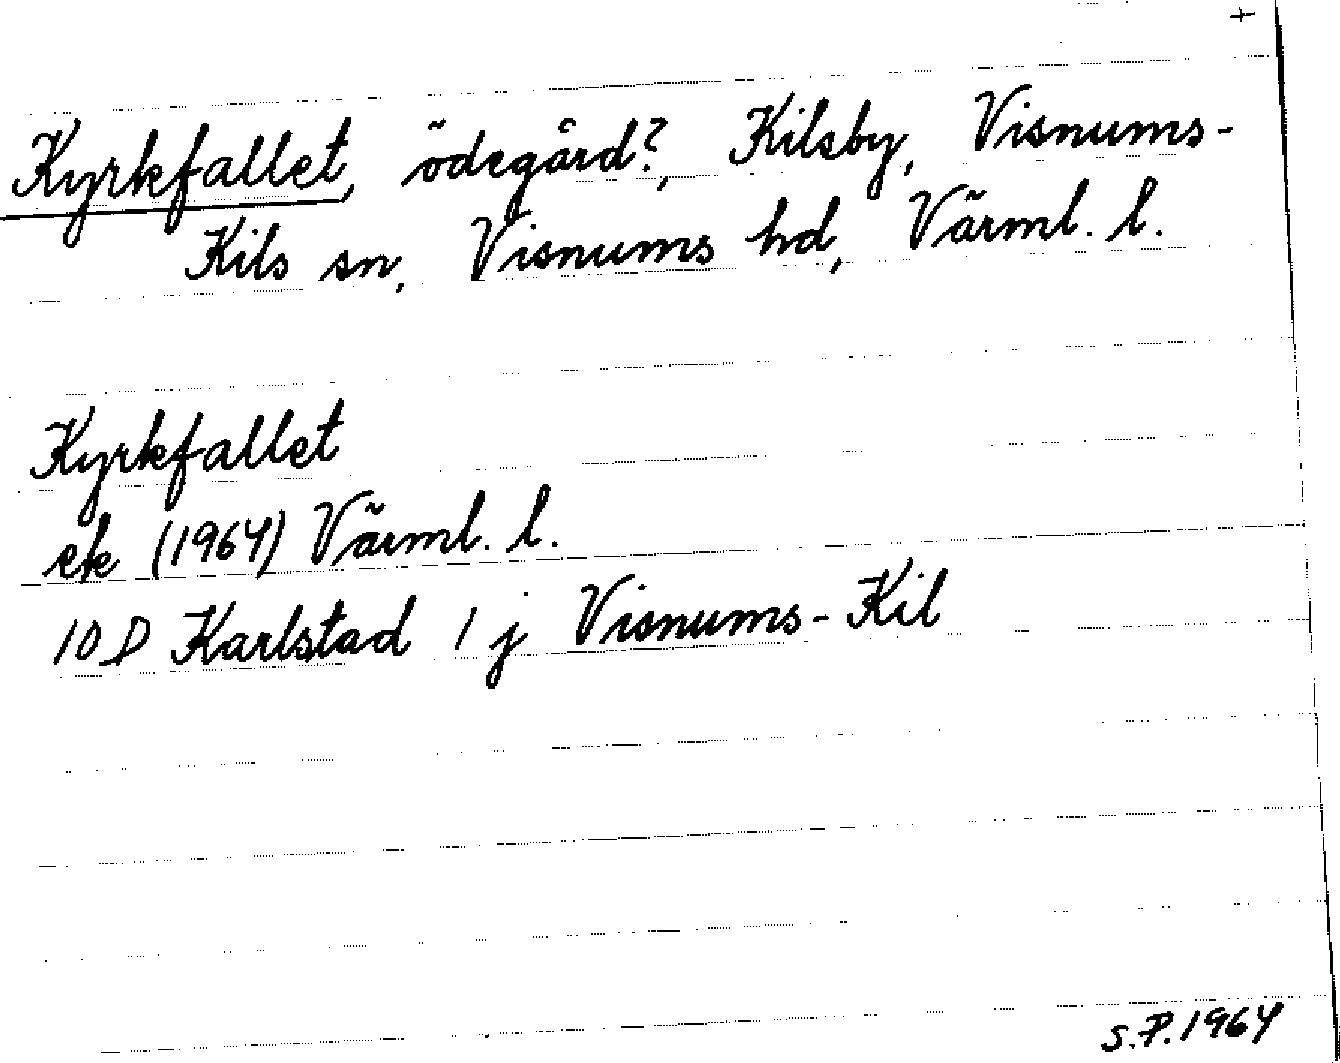 +
Kyrkfallet, ödegård?, Kilsby, Visnums-
Kils sn, Visnums hd, Värml. l.
Kyrkfallet
ek (1964) Värml. l.
10 D Karlstad 1 j Visnums-Kil
S.P. 1964